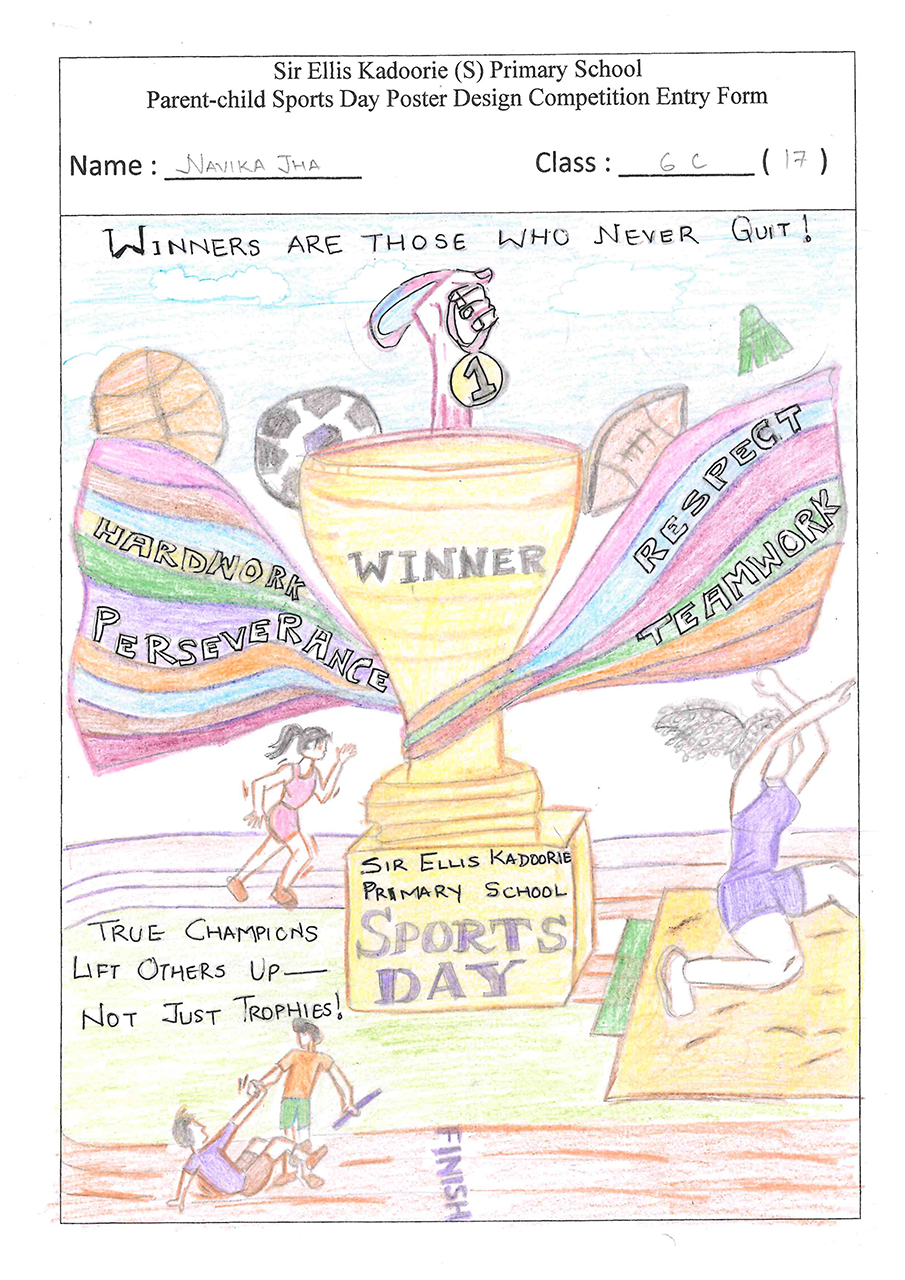 Sir Ellis Kadoorie (S) Primary School
Parent-child Sports Day Poster Design Competition Entry Form
Name : NAVIKA JHA Class : 6 C ( 17 )
WINNERS ARE THOSE WHO NEVER QUIT!
1
HARDWORK
PERSEVERANCE
WINNER
RESPECT
TEAMWORK
SIR ELLIS KADOORIE
PRIMARY SCHOOL
SPORTS
DAY
TRUE CHAMPIONS
LIFT OTHERS UP—
NOT JUST TROPHIES!
FINISH